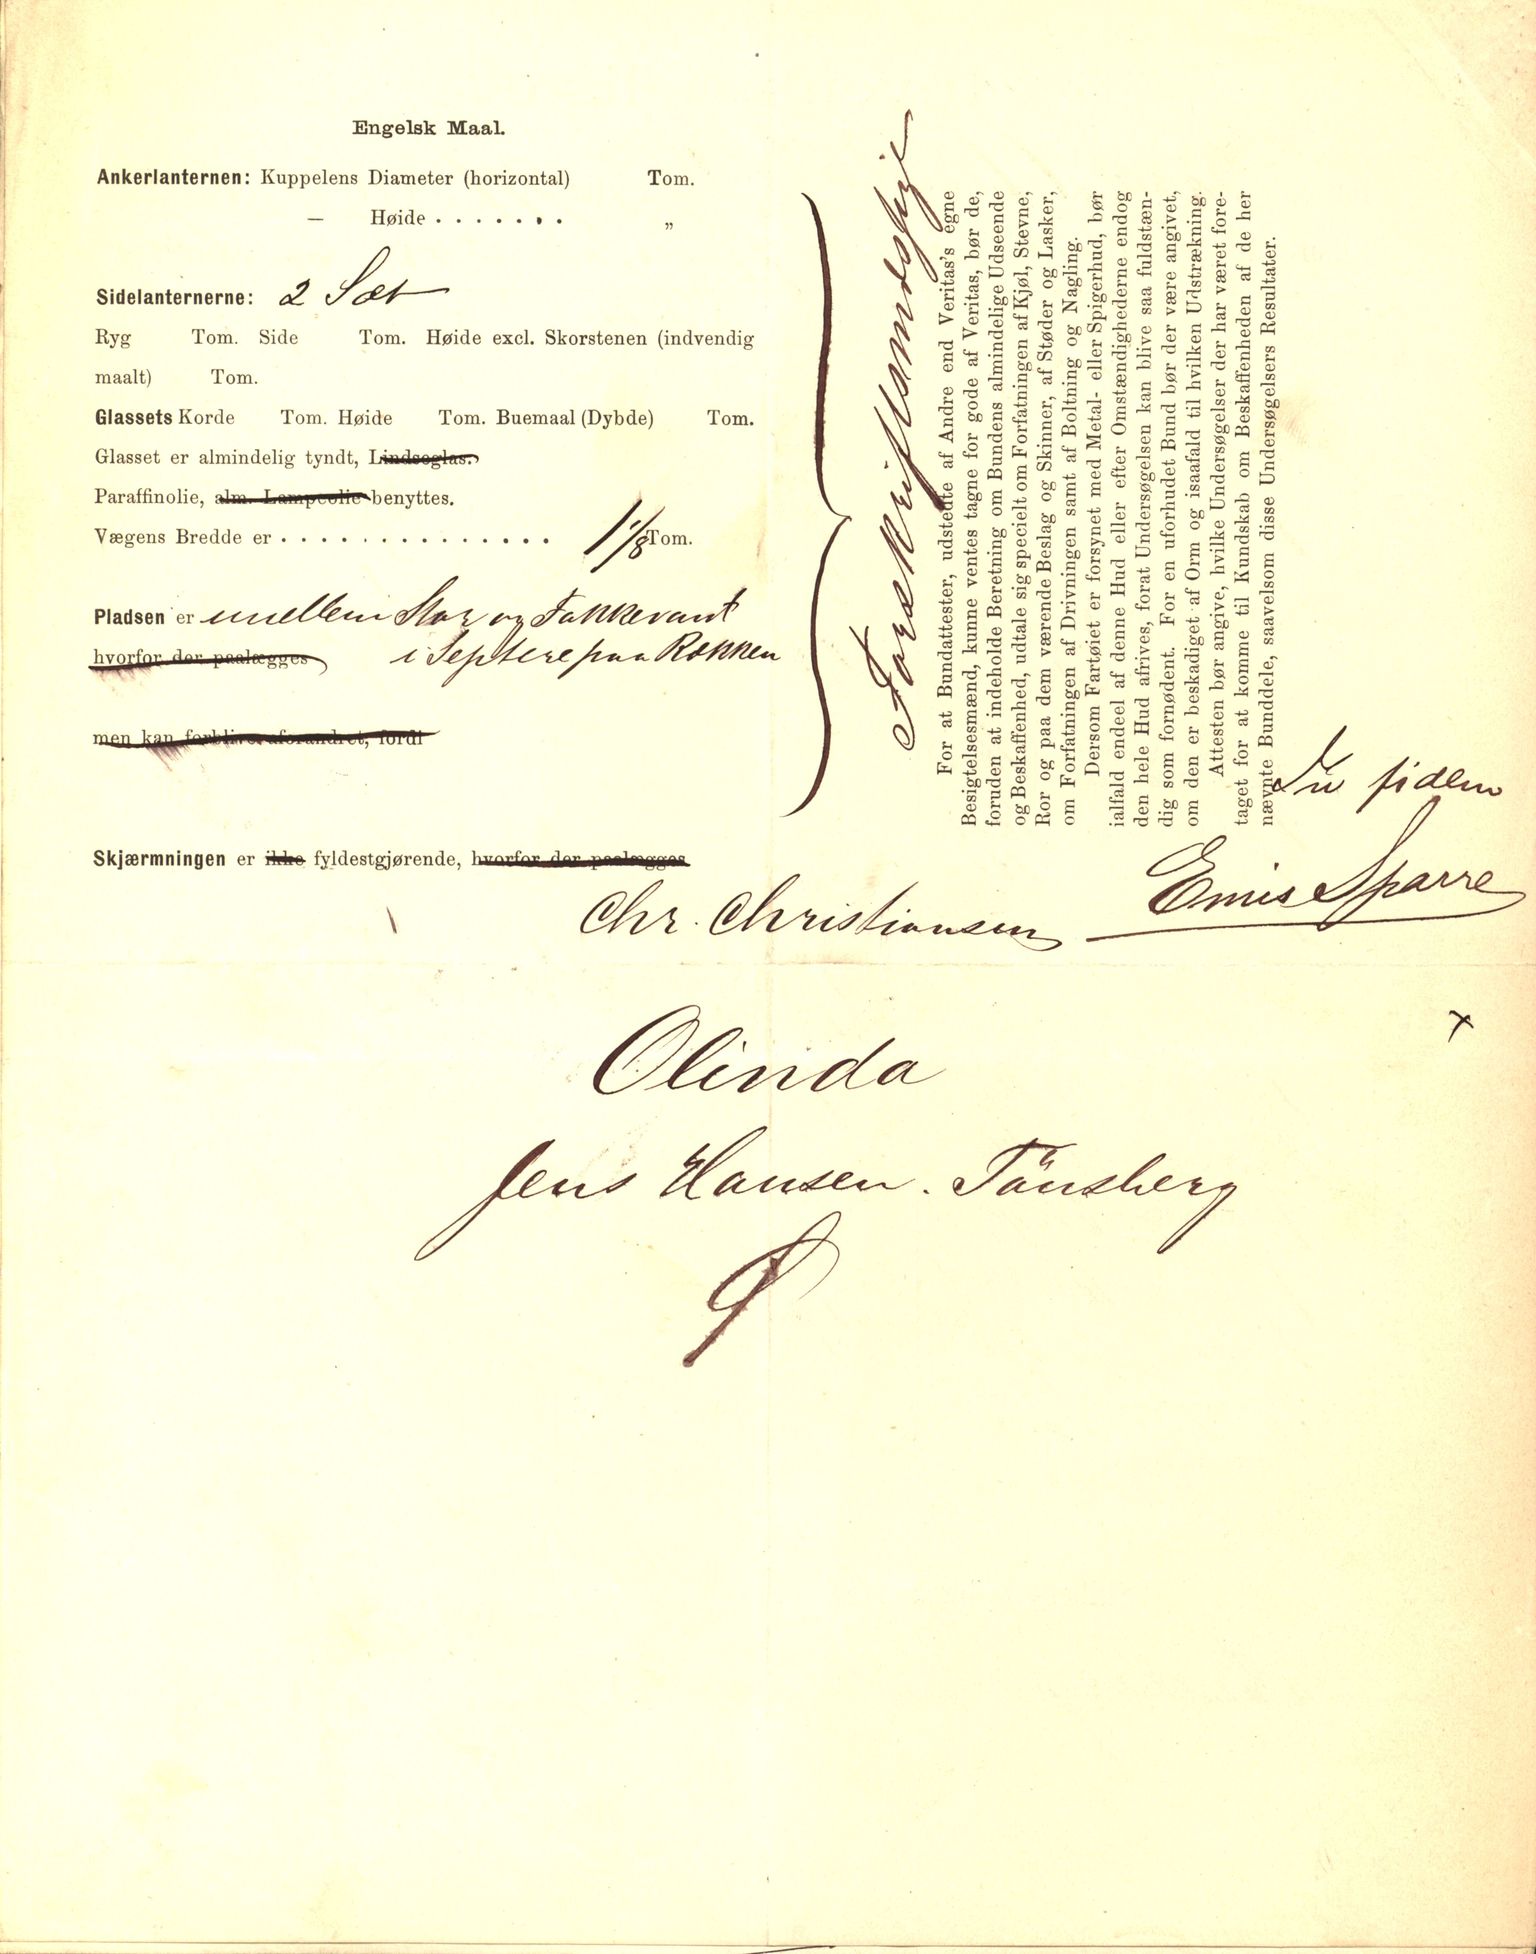 Engelsk Maal.
Ankerlanternen: Kuppelens Diameter (horizontal) Tom.
— Høide . . . . . . . „
Sidelanternerne: 2 Sæt
Ryg Tom. Side Tom. Høide excl. Skorstenen (indvendig
maalt) Tom.
Glassets Korde Tom. Høide Tom. Buemaal (Dybde) Tom.
Glasset er almindelig tyndt, Lindseglas.
Paraffinolie, alm. Lampeolie benyttes.
Vægens Bredde er . . . . . . . . . . . . . . 1 1/8 Tom.
Pladsen er mellem Stor og Fokkevant
hvorfor der paalægges i Septere paa Rækken
men kan forblive uforandret, fordi
Skjærmningen er ikke fyldestgjørende, hvorfor der paalægges
Chr. Christiansen
Forskriftsmæssige
For at Bundattester, udstedte af Andre end Veritas's egne
Besigtelsesmænd, kunne ventes tagne for gode af Veritas, bør de,
foruden at indeholde Beretning om Bundens almindelige Udseende
og Beskaffenhed, udtale sig specielt om Forfatningen af Kjøl, Stevne,
Ror og paa dem værende Beslag og Skinner, af Støder og Lasker,
om Forfatningen af Drivningen samt af Boltning og Nagling.
Dersom Fartøiet er forsynet med Metal- eller Spigerhud, bør
ialfald endeel af denne Hud eller efter Omstændighederne endog
den hele Hud afrives, forat Undersøgelsen kan blive saa fuldstæn-
dig som fornødent. For en uforhudet Bund bør der være angivet,
om den er beskadiget af Orm og isaafald til hvilken Udstrækning.
Attesten bør angive, hvilke Undersøgelser der har været fore-
taget for at komme til Kundskab om Beskaffenheden af de her
nævnte Bunddele, saavelsom disse Undersøgelsers Resultater.
In fidem
Sparre
Olinda
Jens Hansen. Tönsberg